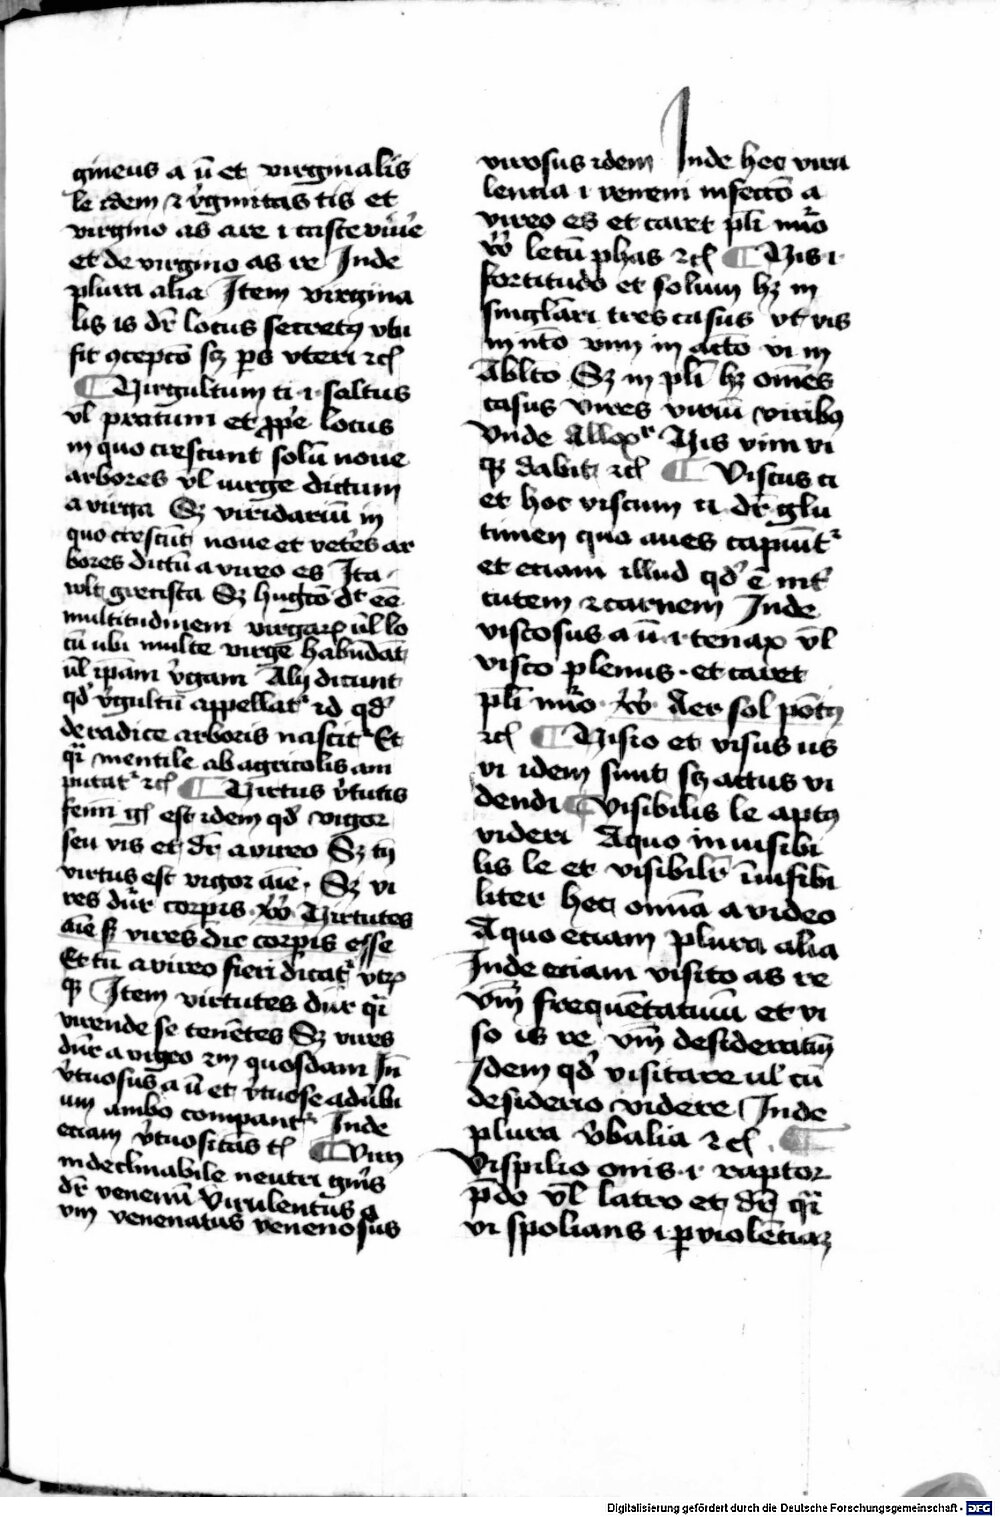 gineus a ū et virginalis
le idem ⁊ v̓ginitas tis et
virgino as are i caste viue̓
et de virgino as re Inde
plura alia Item virgina
lis is dr̄ locus secretꝯ vbi
fit ꝯcepcō scꝫ ps vteri ⁊cꝉ
¶ Virgultum ti ·i· saltus
vl̄ pratum et ꝓpe̓ locus
in quo crescunt solū noue
arbores vl̄ virge dictum
a virga Sꝫ viridariū in
quo crescūt noue et vete̓s ar
bores dictū a vireo es Ita
wlt grecista Sꝫ hugͨto dt̓ eē
multitudinem virgarꝝ vl̄ lo
cū ubi multe virge habūdāt
vl̄ ip̄am v̓gam Alij dicunt
qd̓ v̓gultū appellat̓ id qd̓
de radice arboris nascit̓ Et
qr̄ mentile ab agricolis am
putat̓ ⁊cꝉ ¶ Virtus v̓tutis
fenī gꝉ est idem qd̓ vigor
seu vis et dr̄ a vireo Sꝫ tn̄
virtus est vigor aīe · Sꝫ vi
res dn̄r corpis · Vͦ Virtutes
aīe s̓ vires dic corpis esse
Et tū a vireo fieri dicat̓ vtrꝝ
qꝫ Item virtutes dn̄r qr̄
virende se tenētes Sꝫ vires
dn̄r a vigeo ⁊ in quosdam Jn̄
v̓tuosus a ū et v̓tuose adūbi
um ambo compant̓ Inde
eciam v̓tuositas tꝉ ¶ Virꝯ
indeclinabile neutri gn̄is
dr̄ venenū Virulentus a
vm venenatus venenosus
virosus idem Inde hec viru
lencia i veneni infeccō a
vireo es et caret pl̄i nūo
Vͦ letū phas ⁊cꝉ ¶ Vis ·i·
fortitudo et solum hꝫ in
singl̄ari tres casus vt vis
in ntō vim in actō vi in
Ablto Sꝫ in pl̄i hꝫ omēs
casus vires viriū viribꝯ
Vnde Allexr̓ Vis vim vi
qꝫ dabit ⁊cꝉ ¶ Viscus ci
et hoc viscum ci dr̄ glu
timen quo aues capiūt̓
et eciam illud qd̓ ē int̓
cutem ⁊ carnem Inde
viscosus a ū ·i· tenax vl̄
visco plenus · et caret
pl̄i nūo Vͦ Aer sol potꝯ
⁊cꝉ ¶ Visio et visus us
vi idem sunt scꝫ actus vi
dendi ¶ Visibilis le aptꝯ
videri A quo inuisibi
lis le et visibilr̄ īuisibi
liter hec omīa a video
A quo eciam plura alia
Inde eciam visito as re
vm̄ frequētatiuū et vi
so is re vm̄ desideratiū
Idem qd̓ visitare vl̓ cū
desiderio videre Inde
plura v̓balia ⁊cꝉ · ¶
Vispilio onis ·i· raptor
p̄do vl̄ latro et dr̄ qr̄
vi spolians i ꝑ violēciaꝫ
Digitalisierung gefördert durch die Deutsche Forschungsgemeinschaft - DFG